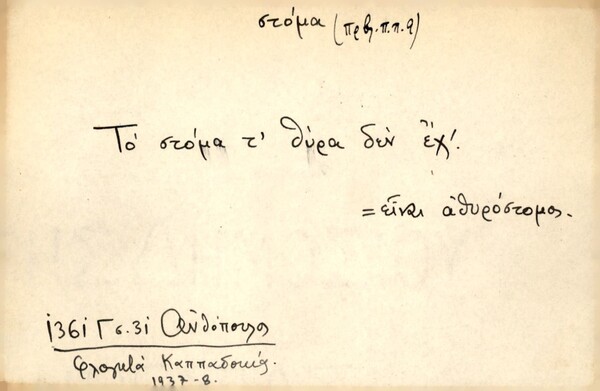 στόμα (πρβ. π.π. 9)
Τὸ στόμα τ' θύρα δὲν ἔχ!
= εἶναι ἀθυρόστομος.
1361 Γσ. 31 Ἀνθόπουλος
Φλογητά Καππαδοκίας.
1937-8.